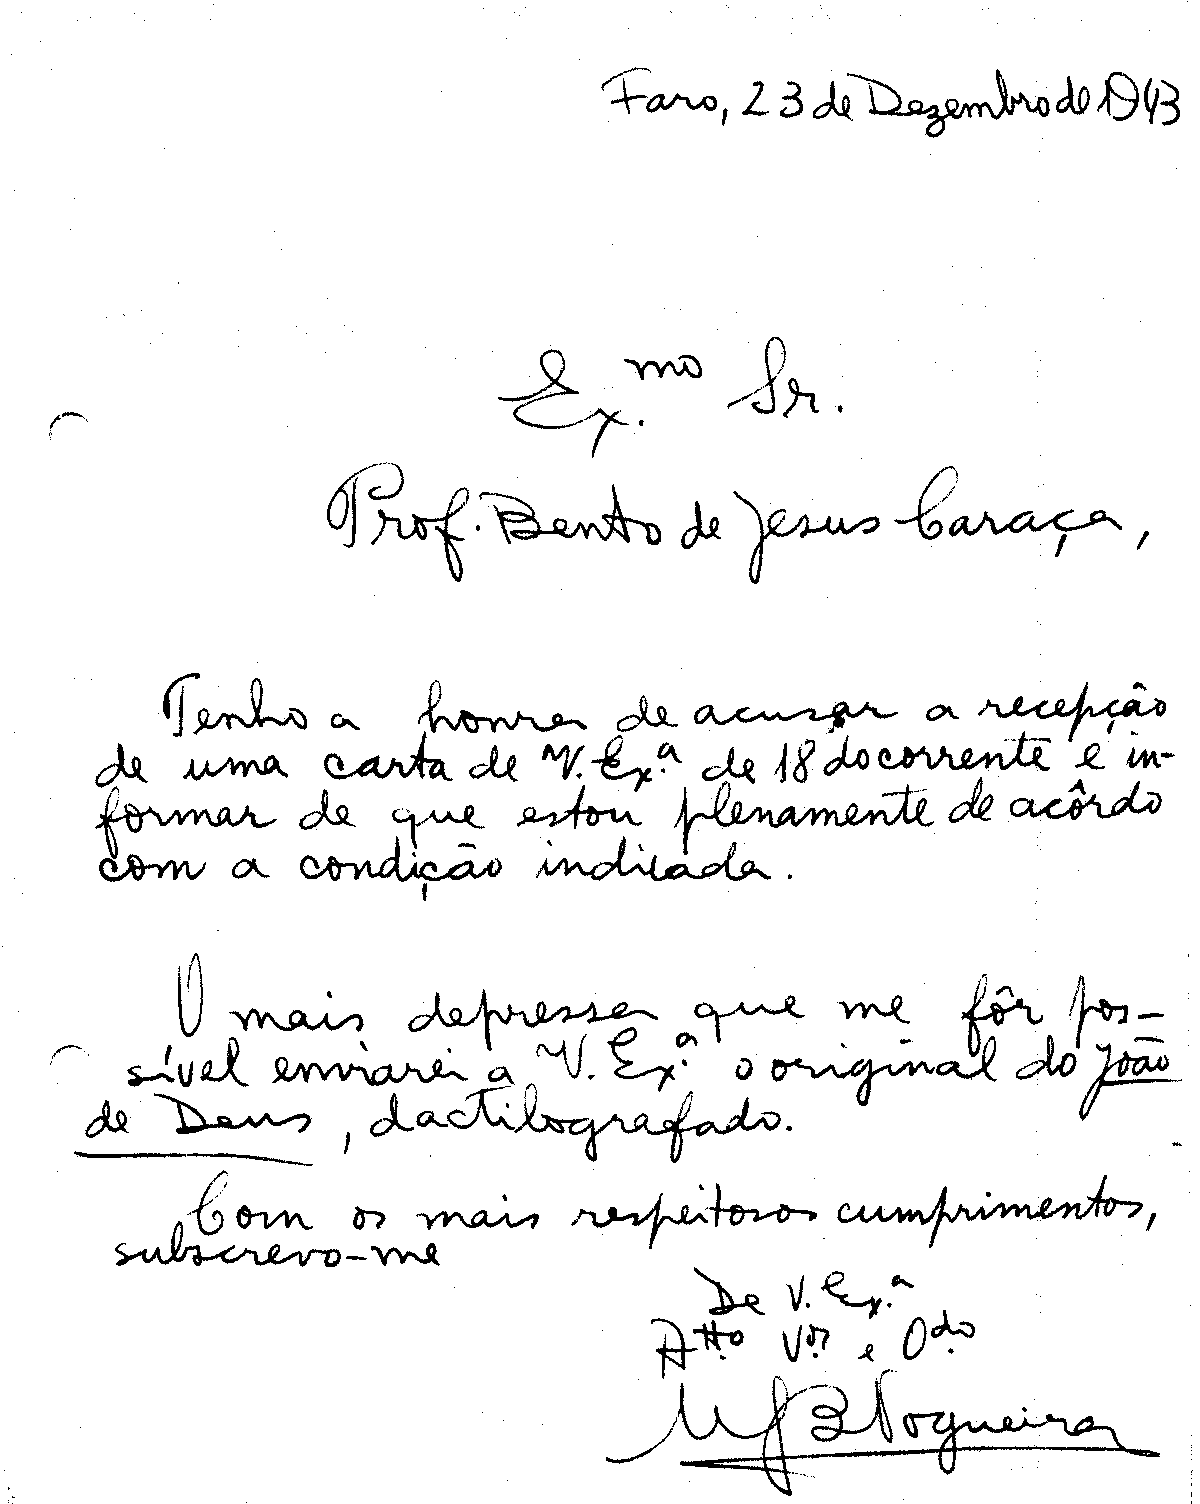 Faro, 23 de Dezembro de 1943
Ex.mo Sr.
Prof. Bento de Jesus Caraça,
Tenho a honra de acusar a recepção
de uma carta de V. Ex.ª de 18 do corrente e in-
formar de que estou plenamente de acôrdo
com a condição indicada.
O mais depressa que me fôr pos-
sível enviarei a V. Ex.ª o original do João
de Deus, dactilografado.
Com os mais respeitosos cumprimentos,
subscrevo-me
De V. Ex.ª
Atto. Vor. e Odo.
M J B Nogueira